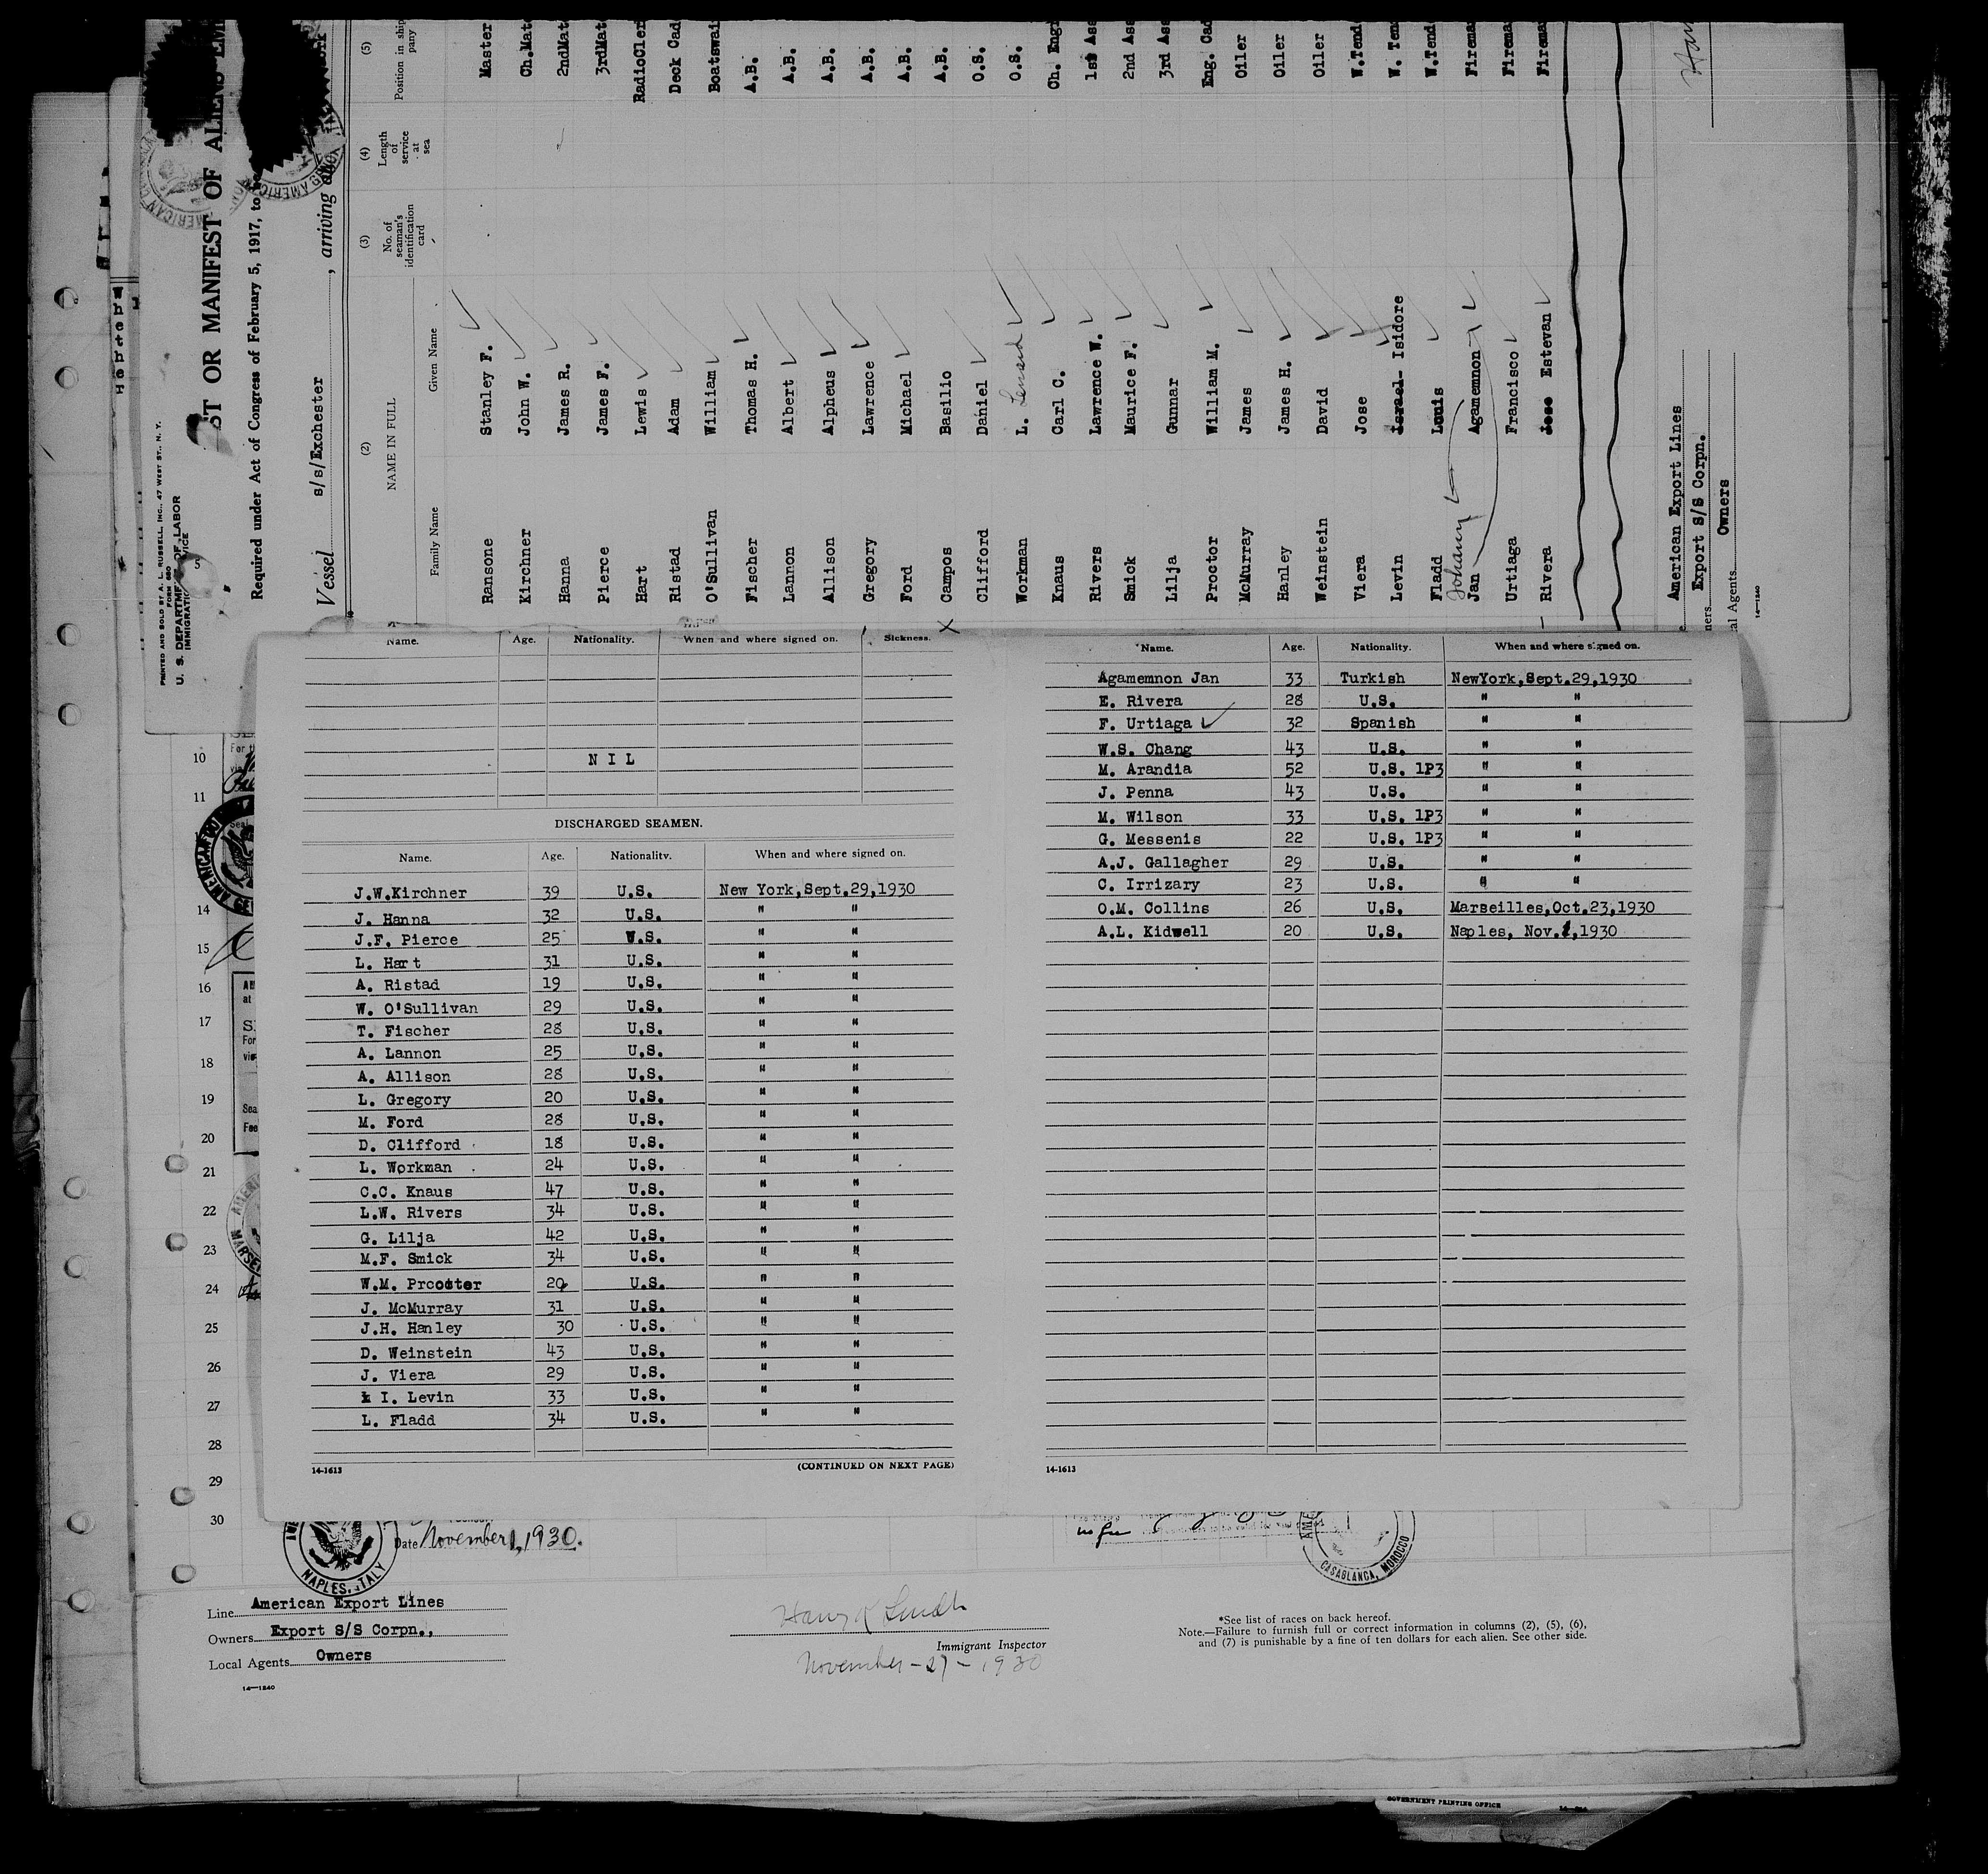 PRINTED AND SOLD BY A. L. RUSSELL, INC., 47 WEST ST., N. Y.
U. S. DEPARTMENT OF LABOR
FORM 680
IMMIGRATION
ST OR MANIFEST OF ALIENS EM
Required under Act of Congress of February 5, 1917, to
Vessel s/s/Exchester , arriving
(2) (3) (4) (5)
NAME IN FULL No. of seaman's identification card Length of service at sea Position in ship
Family Name Given Name
Ransone Stanley F. Master
Kirchner John W. Ch.Mat
Hanna James R. 2ndMat
Pierce James F. 3rdMat
Hart Lewis RadioCler
Ristad Adam Deck Cad
O'Sullivan William Boatswai
Fischer Thomas H. A.B.
Lannon Albert A.B.
Allison Alpheus A.B.
Gregory Lawrence A.B.
Ford Michael A.B.
Campos Basilio A.B.
Clifford Daniel O.S.
Workman L. Lenard O.S.
Knaus Carl C. Ch. Eng
Rivers Lawrence W. 1st As
Smick Maurice F. 2nd As
Lilja Gunnar 3rd As
Proctor William M. Eng. Cad
McMurray James Oiler
Hanley James H. Oiler
Weinstein David Oiler
Viera Jose W.Tend
Levin Israel- Isidore W. Ten
Fladd Louis W.Tend
Johany
Jan Agamemnon Firema
Urtiaga Francisco Firema
Rivera Jose Estevan Firema
American Export Lines
Export s/s Corpn.
Owners
al Agents
14—1240
Name. Age. Nationality. When and where signed on. Sickness.
N I L
DISCHARGED SEAMEN.
Name. Age. Nationality. When and where signed on.
J.W.Kirchner 39 U.S. New York,Sept.29,1930
J. Hanna 32 U.S. " "
J.F. Pierce 25 U.S. " "
L. Hart 31 U.S. " "
A. Ristad 19 U.S. " "
W. O'Sullivan 29 U.S. " "
T. Fischer 28 U.S. " "
A. Lannon 25 U.S. " "
A. Allison 28 U.S. " "
L. Gregory 20 U.S. " "
M. Ford 28 U.S. " "
D. Clifford 18 U.S. " "
L. Workman 24 U.S. " "
C.C. Knaus 47 U.S. " "
L.W. Rivers 34 U.S. " "
G. Lilja 42 U.S. " "
M.F. Smick 34 U.S. " "
W.M. Prcoster 20 U.S. " "
J. McMurray 31 U.S. " "
J.H. Hanley 30 U.S. " "
D. Weinstein 43 U.S. " "
J. Viera 29 U.S. " "
I. Levin 33 U.S. " "
L. Fladd 34 U.S. " "
14-1613 (CONTINUED ON NEXT PAGE)
Name. Age. Nationality. When and where signed on.
Agamemnon Jan 33 Turkish NewYork,Sept.29,1930
E. Rivera 28 U.S. " "
F. Urtiaga 32 Spanish " "
W.S. Chang 43 U.S. " "
M. Arandia 52 U.S. 1P3 " "
J. Penna 43 U.S. " "
M. Wilson 33 U.S. 1P3 " "
G. Messenis 22 U.S. 1P3 " "
A.J. Gallagher 29 U.S. " "
C. Irrizary 23 U.S. " "
O.M. Collins 26 U.S. Marseilles,Oct.23,1930
A.L. Kidwell 20 U.S. Naples, Nov.1,1930
14-1613
10
11
14
15
16
17
18
19
20
21
22
23
24
25
26
27
28
29
30
NAPLES, ITALY
Date November 1, 1930.
CASABLANCA, MOROCCO
Line American Export Lines
Owners Export S/S Corpn.,
Local Agents Owners
14—1240
Immigrant Inspector
November - 27 - 1930
*See list of races on back hereof.
Note.—Failure to furnish full or correct information in columns (2), (5), (6),
and (7) is punishable by a fine of ten dollars for each alien. See other side.
GOVERNMENT PRINTING OFFICE